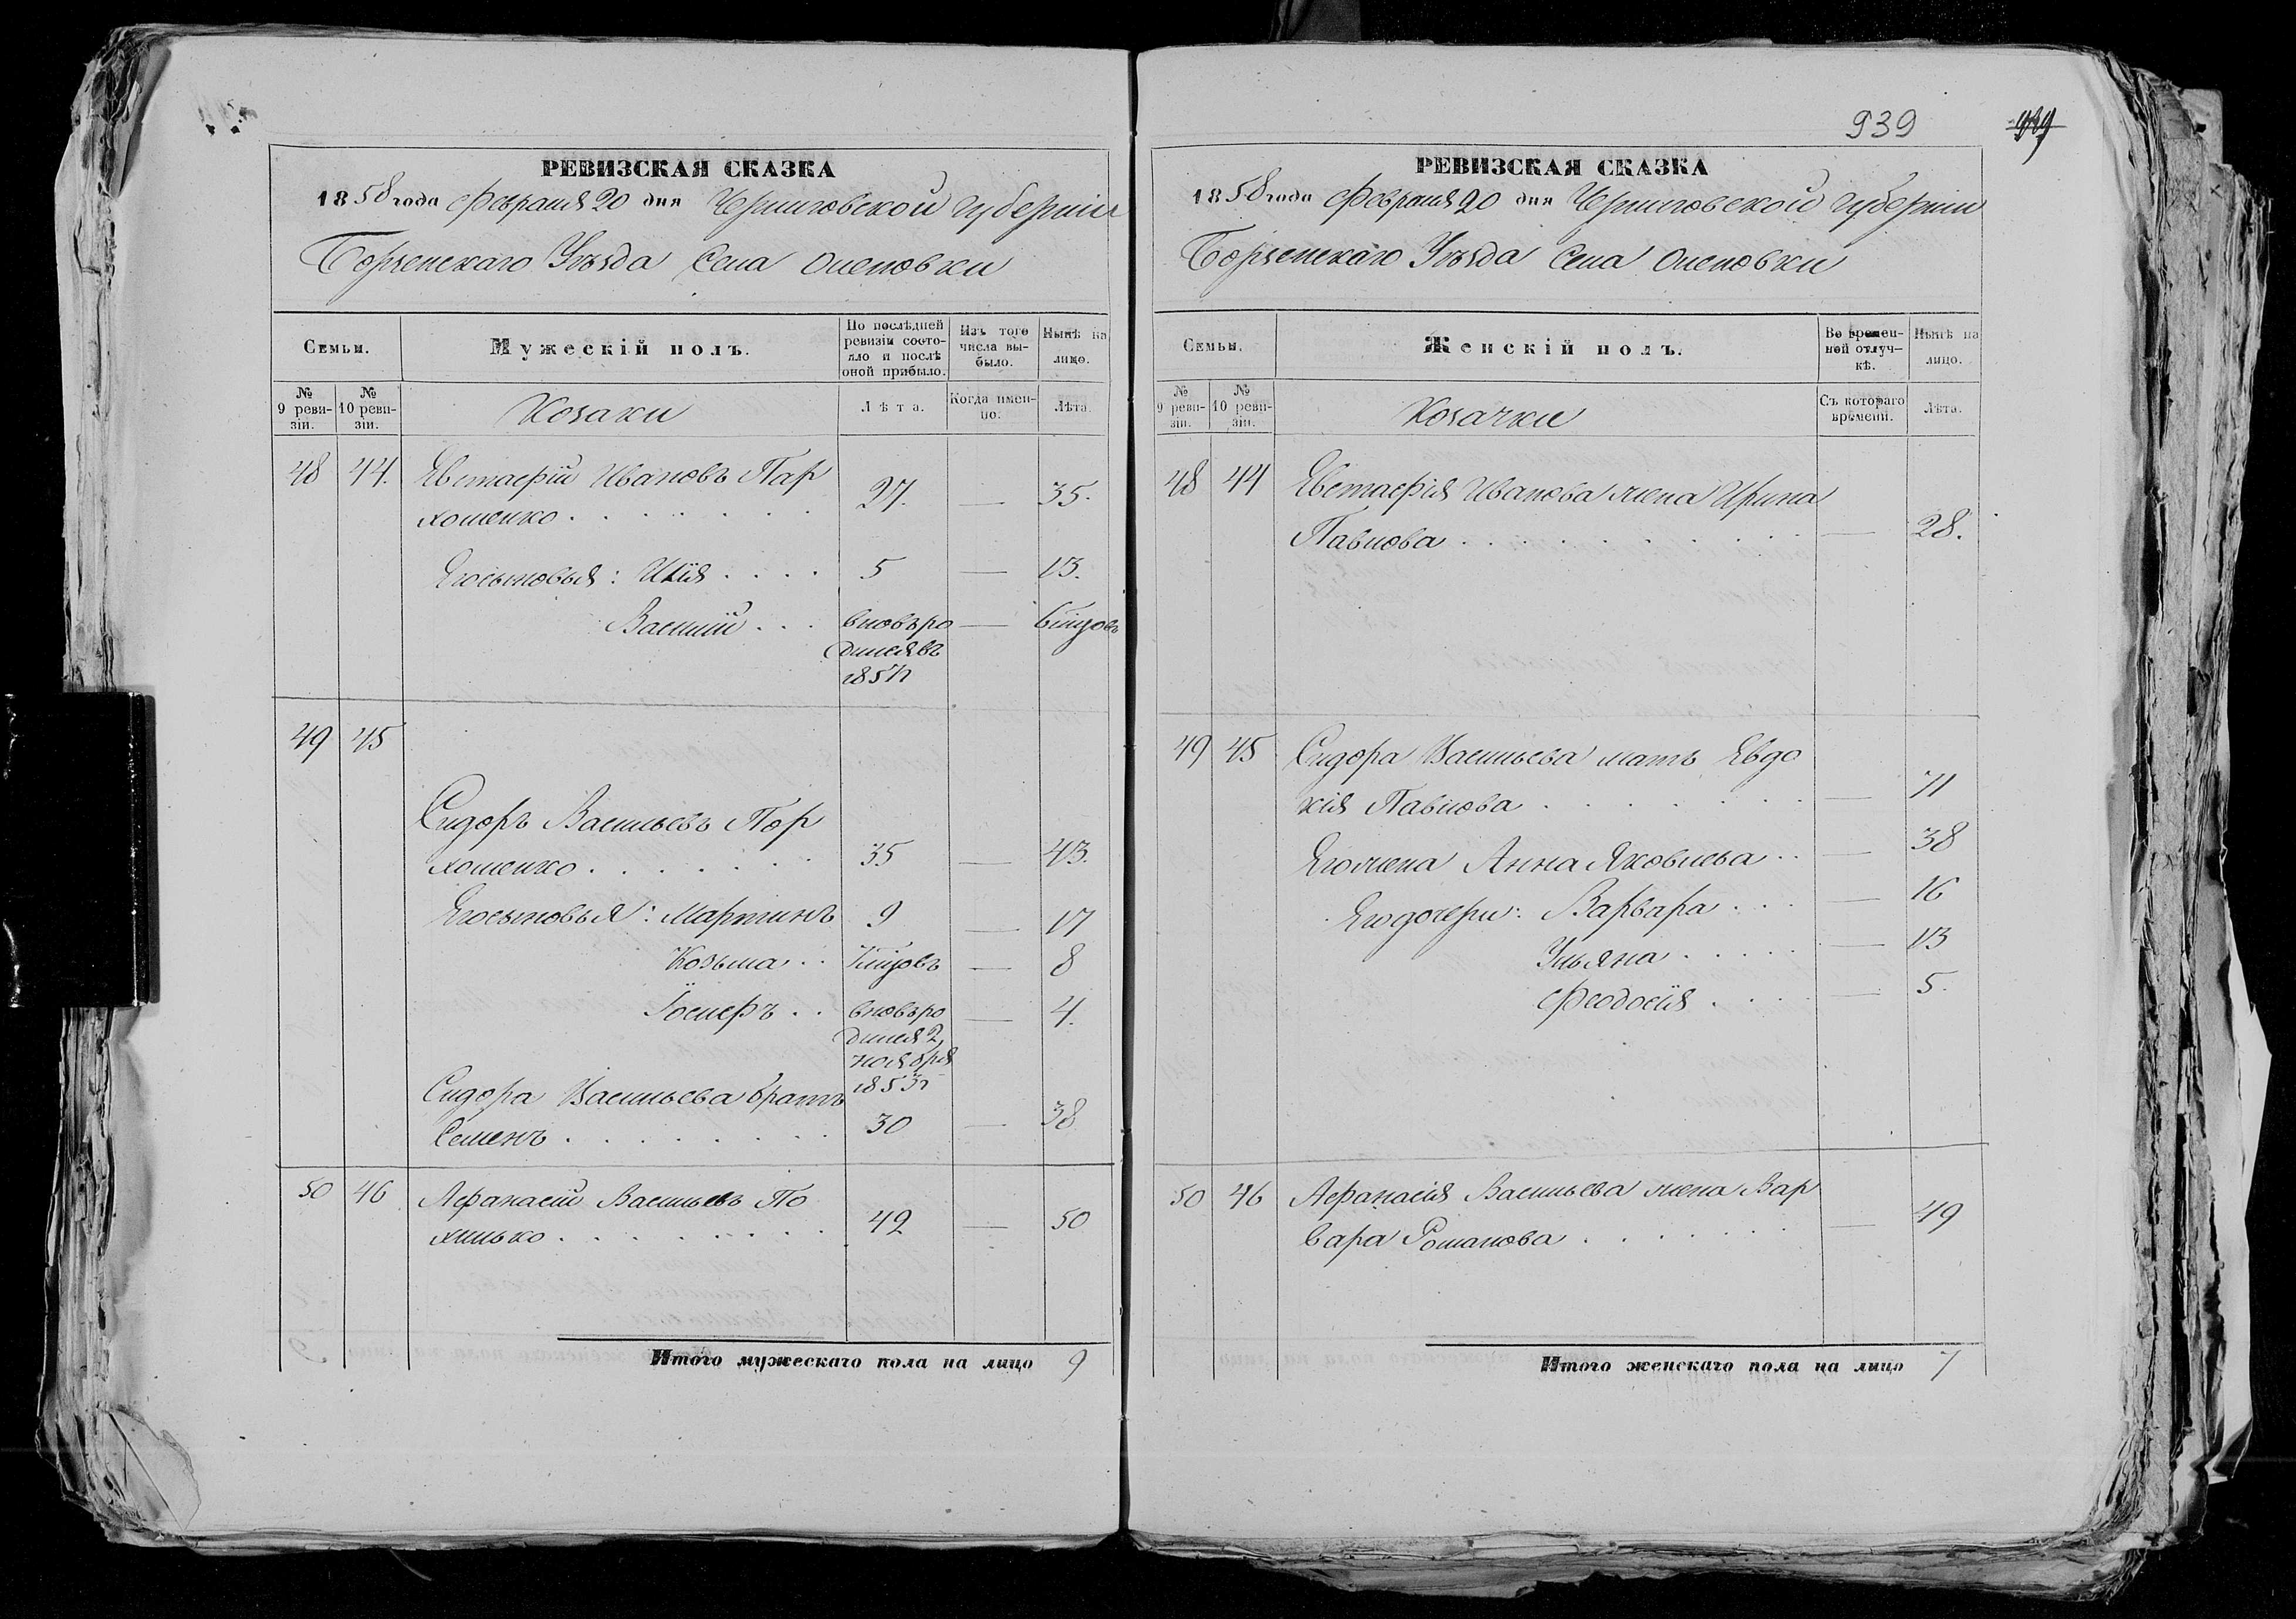 939
939
РЕВИЗСКАЯ СКАЗКА
1858 года Февраля 20 дня Черниговской губернии
Борзенскаго Уѣзда Села Оленовки
Семьи.
Мужескій полъ.
По послѣдней ревизіи состояло и послѣ оной прибыло.
Изъ того числа выбыло.
Нынѣ на лицо.
№ 9 ревизіи.
№ 10 ревизіи.
Козаки
Лѣта.
Когда именно.
Лѣта.
48 44. Евстафій Ивановъ Пар
хоменко . . . . . . . 27. — 35.
Его сыновья: Илія . . . . 5 — 13.
Василій . . . вновь ро — 6 мѣсяцовъ
дился въ
1857 г.
49 45
Сидоръ Васильевъ Пор
хоменко . . . . . . . 35 — 43.
Его сыновья: Мартинъ 9 — 17
Козьма . . — 8
Іосифъ . . вновь ро — 4.
дился 2
ноября
1853 г.
Сидора Васильева братъ
Семенъ . . . . . . . . 30 — 38
50 46 Афанасій Васильевъ По
хилько . . . . . . . . 42 — 50
Итого мужескаго пола на лицо 9
РЕВИЗСКАЯ СКАЗКА
1858 года Февраля 20 дня Черниговской губернии
Борзенскаго Уѣзда Села Оленовки
Семьи.
Женскій полъ.
Во временной отлучкѣ.
Нынѣ на лицо.
№ 9 ревизіи.
№ 10 ревизіи.
Козачки
Съ котораго времени.
Лѣта.
48 44 Евстафія Иванова жена Ирина
Павлова . . . . . . . . . — 28.
49 45 Сидора Васильева мать Евдо
кія Павлова . . . . . . . — 71
Его жена Анна Яковлева . . — 38
Его дочери: Варвара . . . — 16
Ульяна . . . . . — 13
Феодосія . . . . — 5.
50 46 Афанасія Васильева жена Вар
вара Романова . . . . . . — 49
Итого женскаго пола на лицо 7